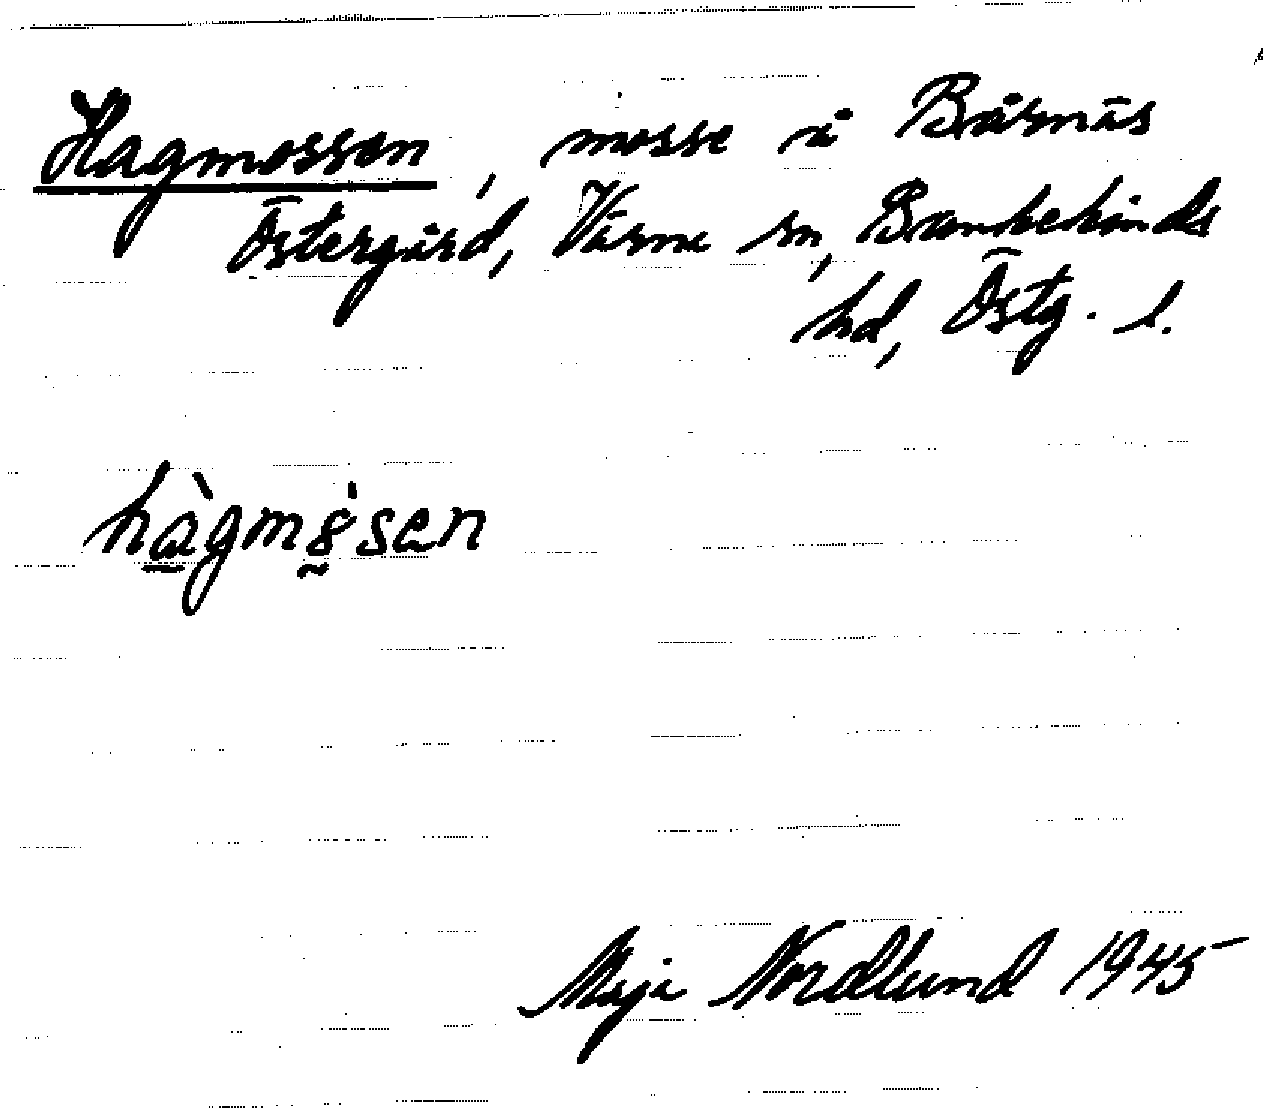 Hagmossen, mosse å Bårnäs
Östergård, Värna sn, Bankekinds
hd, Östg. l.
hàgmo̰̍sen
Maja Nordlund 1945